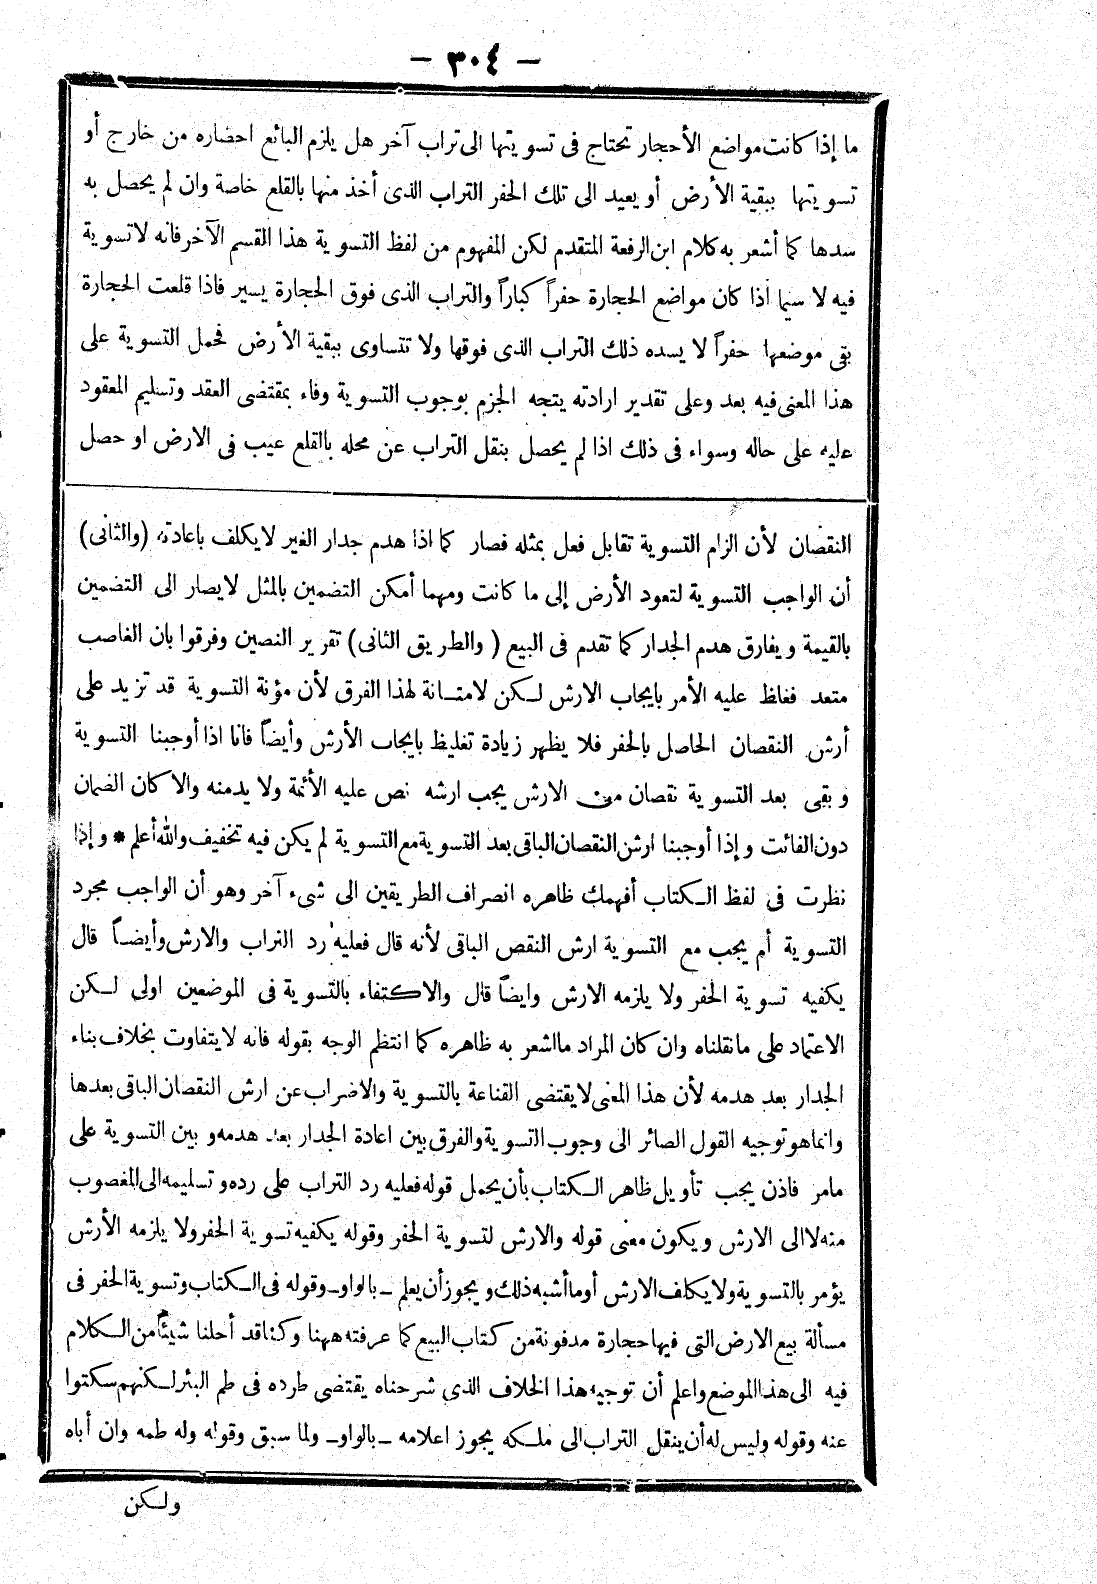 — ٣٠٤ —
ما إذا كانت مواضع الأحجار تحتاج فى تسويتها الى تراب آخر هل يلزم البائع احضاره من خارج أو
تسويتها ببقية الأرض أو يعيد الى تلك الحفر التراب الذى أخذ منها بالقلع خاصة وان لم يحصل به
سدها كما أشعر به كلام ابن الرفعة المتقدم لكن المفهوم من لفظ التسوية هذا القسم الآخر فانه لا تسوية
فيه لا سيما اذا كان مواضع الحجارة حفراً كباراً والتراب الذى فوق الحجارة يسير فاذا قلعت الحجارة
بقى موضعها حفراً لا يسده ذلك التراب الذى فوقها ولا تتساوى ببقية الأرض فحمل التسوية على
هذا المعنى فيه بعد وعلى تقدير ارادته يتجه الجزم بوجوب التسوية وفاء بمقتضى العقد وتسليم المعقود
عليه على حاله وسواء فى ذلك اذا لم يحصل بنقل التراب عن محله بالقلع عيب فى الارض او حصل
النقصان لأن الزام التسوية تقابل فعل بمثله فصار كما اذا هدم جدار الغير لا يكلف باعادته (والثانى)
أن الواجب التسوية لتعود الأرض إلى ما كانت ومهما أمكن التضمين بالمثل لا يصار الى التضمين
بالقيمة ويفارق هدم الجدار كما تقدم فى البيع (والطريق الثانى) تقرير النصين وفرقوا بان الغاصب
متعد فغلظ عليه الأمر بايجاب الارش لـكن لامتـانة لهذا الفرق لأن مؤنة التسوية قد تزيد على
أرش النقصان الحاصل بالحفر فلا يظهر زيادة تغليظ بايجاب الأرش وأيضاً فانا اذا أوجبنا التسوية
وبقى بعد التسوية نقصان من الارش يجب ارشه نص عليه الأئمة ولا يدمنه والا كان الضمان
دون الفائت وإذا أوجبنا ارش النقصان الباقى بعد التسوية مع التسوية لم يكن فيه تخفيف والله أعلم * وإذا
نظرت فى لفظ الـكتاب أفهمك ظاهره انصراف الطريقين الى شىء آخر وهو أن الواجب مجرد
التسوية أم يجب مع التسوية ارش النقص الباقى لأنه قال فعليه رد التراب والارش وأيضـاً قال
يكفيه تسوية الحفر ولا يلزمه الارش وايضاً قال والاكتفاء بالتسوية فى الموضعين اولى لـكن
الاعتماد على ما نقلناه وان كان المراد ما اشعر به ظاهره كما انتظم الوجه بقوله فانه لا يتفاوت بخلاف بناء
الجدار بعد هدمه لأن هذا المغنى لا يقتضى القناعة بالتسوية والاضراب عن ارش النقصان الباقى بعدها
وانما هو توجيه القول الصائر الى وجوب التسوية والفرق بين اعادة الجدار بعد هدمه وبين التسوية على
مامر فاذن يجب تأويل ظاهر الـكتاب بأن يحمل قوله فعليه رد التراب على رده وتسليمه الى المغصوب
منه لا الى الارش ويكون معنى قوله والارش لتسوية الحفر وقوله يكفيه تسوية الحفر ولا يلزمه الأرش
يؤمر بالتسوية ولا يكلف الارش أو ما أشبه ذلك ويجوز أن يعلم ـ بالواو ـ وقوله فى الـكتاب وتسوية الحفر فى
مسألة بيع الارض التى فيها حجارة مدفونة من كتاب البيع كما عرفته ههنا وكنا قد أحلنا شيئاً من الـكلام
فيه الى هذا الموضع واعلم أن توجيه هذا الخلاف الذى شرحناه يقتضى طرده فى طم البئر لـكنهم سكتوا
عنه وقوله وليس له أن ينقل التراب الى ملـكه يجوز اعلامه ـ بالواو ـ ولما سبق وقوله وله طمه وان أباه
ولـكن